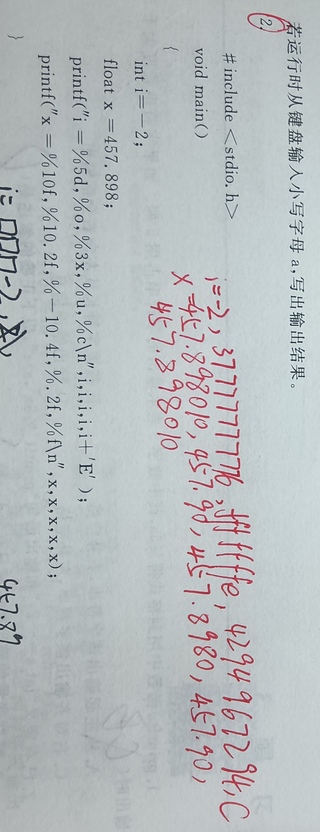 2. 若运行时从键盘输入小写字母 a,写出输出结果。
# include <stdio. h>
void main()
{
int i=-2;
float x =457. 898;
printf("i = %5d,%o,%3x,%u,%c\n",i,i,i,i,i+'E');
printf("x = %10f,%10. 2f,%-10. 4f,%. 2f,%f\n",x,x,x,x,x);
}
i=-2, 37777777776, fffffffe, 4294967294, C
x=457.898010, 457.90, 457.8980, 457.90,
457.898010
-2,
457.89